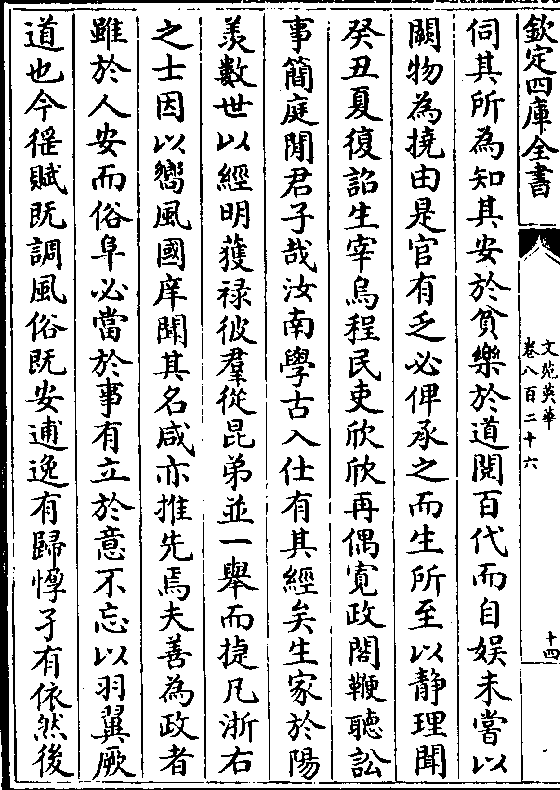 欽定四庫全書
文苑英華
卷八百二十六
十四
伺其所為知其安於貧樂於道閱百代而自娱未嘗以
闕物為撓由是官有乏必俾承之而生所至以靜理聞
癸丑夏復詔生宰烏程民吏欣欣再偶寛政閣鞭聽訟
事簡庭閒君子哉汝南學古入仕有其經矣生家於陽
羨數世以經明獲禄彼羣從昆弟並一舉而捷凡浙右
之士因以嚮風國庠聞其名咸亦推先焉夫善為政者
雖於人安而俗阜必當於事有立於意不忘以羽翼厥
道也今徭賦既調風俗既安逋逸有歸惸孑有依然後